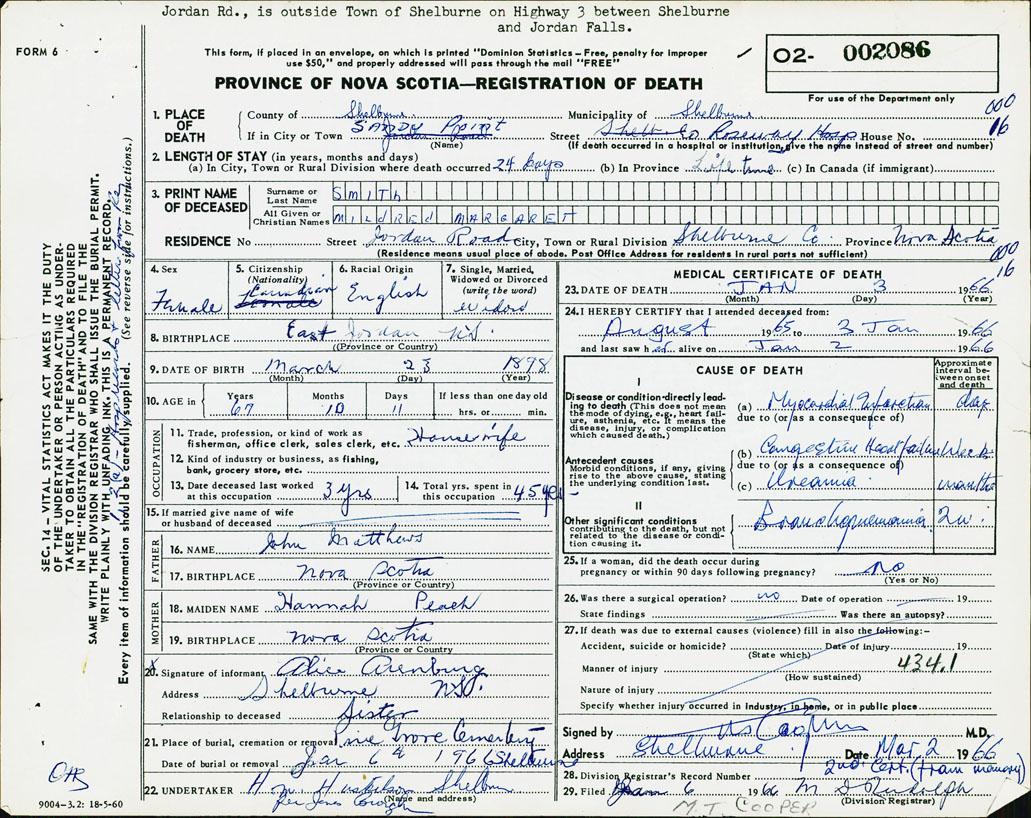 Jordan Rd., is outside Town of Shelburne on Highway 3 between Shelburne
and Jordan Falls.
FORM 6
This form, if placed in an envelope, on which is printed "Dominion Statistics – Free, penalty for improper
use $50," and properly addressed will pass through the mail "FREE"
O2- 002086
For use of the Department only
PROVINCE OF NOVA SCOTIA—REGISTRATION OF DEATH
000
16
1. PLACE OF DEATH
County of Shelburne Municipality of Shelburne
If in City or Town Sandy Point Street Shelb Co Roseway Hosp House No.
(Name) (If death occurred in a hospital or institution, give the name instead of street and number)
2. LENGTH OF STAY (in years, months and days)
(a) In City, Town or Rural Division where death occurred 24 days (b) In Province Life time (c) In Canada (if immigrant)
3. PRINT NAME OF DECEASED
Surname or Last Name SMITH
All Given or Christian Names MILDRED MARGARET
RESIDENCE No Street Jordan Road City, Town or Rural Division Shelburne Co. Province Nova Scotia
(Residence means usual place of abode. Post Office Address for residents in rural parts not sufficient)
000
16
4. Sex Female
5. Citizenship (Nationality) Canadian
6. Racial Origin English
7. Single, Married, Widowed or Divorced (write the word) Widow
8. BIRTHPLACE East Jordan N.S.
(Province or Country)
9. DATE OF BIRTH March 23 1898
(Month) (Day) (Year)
10. AGE in Years 67 Months 10 Days 11 If less than one day old hrs. or min.
OCCUPATION
11. Trade, profession, or kind of work as fisherman, office clerk, sales clerk, etc. Housewife
12. Kind of industry or business, as fishing, bank, grocery store, etc.
13. Date deceased last worked at this occupation 3 yrs
14. Total yrs. spent in this occupation 45 yrs
15. If married give name of wife or husband of deceased
FATHER
16. NAME John Matthews
17. BIRTHPLACE Nova Scotia
(Province or Country)
MOTHER
18. MAIDEN NAME Hannah Peach
19. BIRTHPLACE Nova Scotia
(Province or Country)
20. Signature of informant Alice Arenburg
Address Shelburne N.S.
Relationship to deceased Sister
21. Place of burial, cremation or removal Pine Grove Cemetery
Date of burial or removal Jan 6th 1966 Shelburne
22. UNDERTAKER H. M. Huskilson Shelburne
(Name and address)
9004-3.2: 18-5-60
SEC. 14 – VITAL STATISTICS ACT MAKES IT THE DUTY
OF THE UNDERTAKER OR PERSON ACTING AS UNDER-
TAKER TO OBTAIN ALL THE PARTICULARS REQUIRED
IN THE "REGISTRATION OF DEATH" AND TO FILE THE
SAME WITH THE DIVISION REGISTRAR WHO SHALL ISSUE THE BURIAL PERMIT.
WRITE PLAINLY WITH UNFADING INK. THIS IS A PERMANENT RECORD,
Every item of information should be carefully supplied. (See reverse side for instructions.)
MEDICAL CERTIFICATE OF DEATH
23. DATE OF DEATH JAN 3 1966
(Month) (Day) (Year)
24. I HEREBY CERTIFY that I attended deceased from:
August 1965 to 3 Jan 1966
and last saw her alive on Jan 2 1966
CAUSE OF DEATH
Approximate interval between onset and death
I
Disease or condition-directly leading to death (This does not mean the mode of dying, e.g., heart failure, asthenia, etc. It means the disease, injury, or complication which caused death.)
(a) Myocardial Infarction day
due to (or as a consequence of)
Antecedent causes
Morbid conditions, if any, giving rise to the above cause, stating the underlying condition last.
(b) Congestive Heart failure Weeks
due to (or as a consequence of)
(c) Uraemia months
II
Other significant conditions contributing to the death, but not related to the disease or condition causing it.
Bronchopneumonia 2w.
25. If a woman, did the death occur during pregnancy or within 90 days following pregnancy? No
(Yes or No)
26. Was there a surgical operation? no Date of operation 19
State findings Was there an autopsy?
27. If death was due to external causes (violence) fill in also the following:–
Accident, suicide or homicide? Date of injury 19
(State which)
Manner of injury 434.1
(How sustained)
Nature of injury
Specify whether injury occurred in Industry, in home, or in public place
Signed by M.D.
Address Shelburne Date Mar. 2 1966
2nd Cert. (from memory)
28. Division Registrar's Record Number
29. Filed Jan 6 1966 M D Rudolph
(Division Registrar)
M.T. COOPER